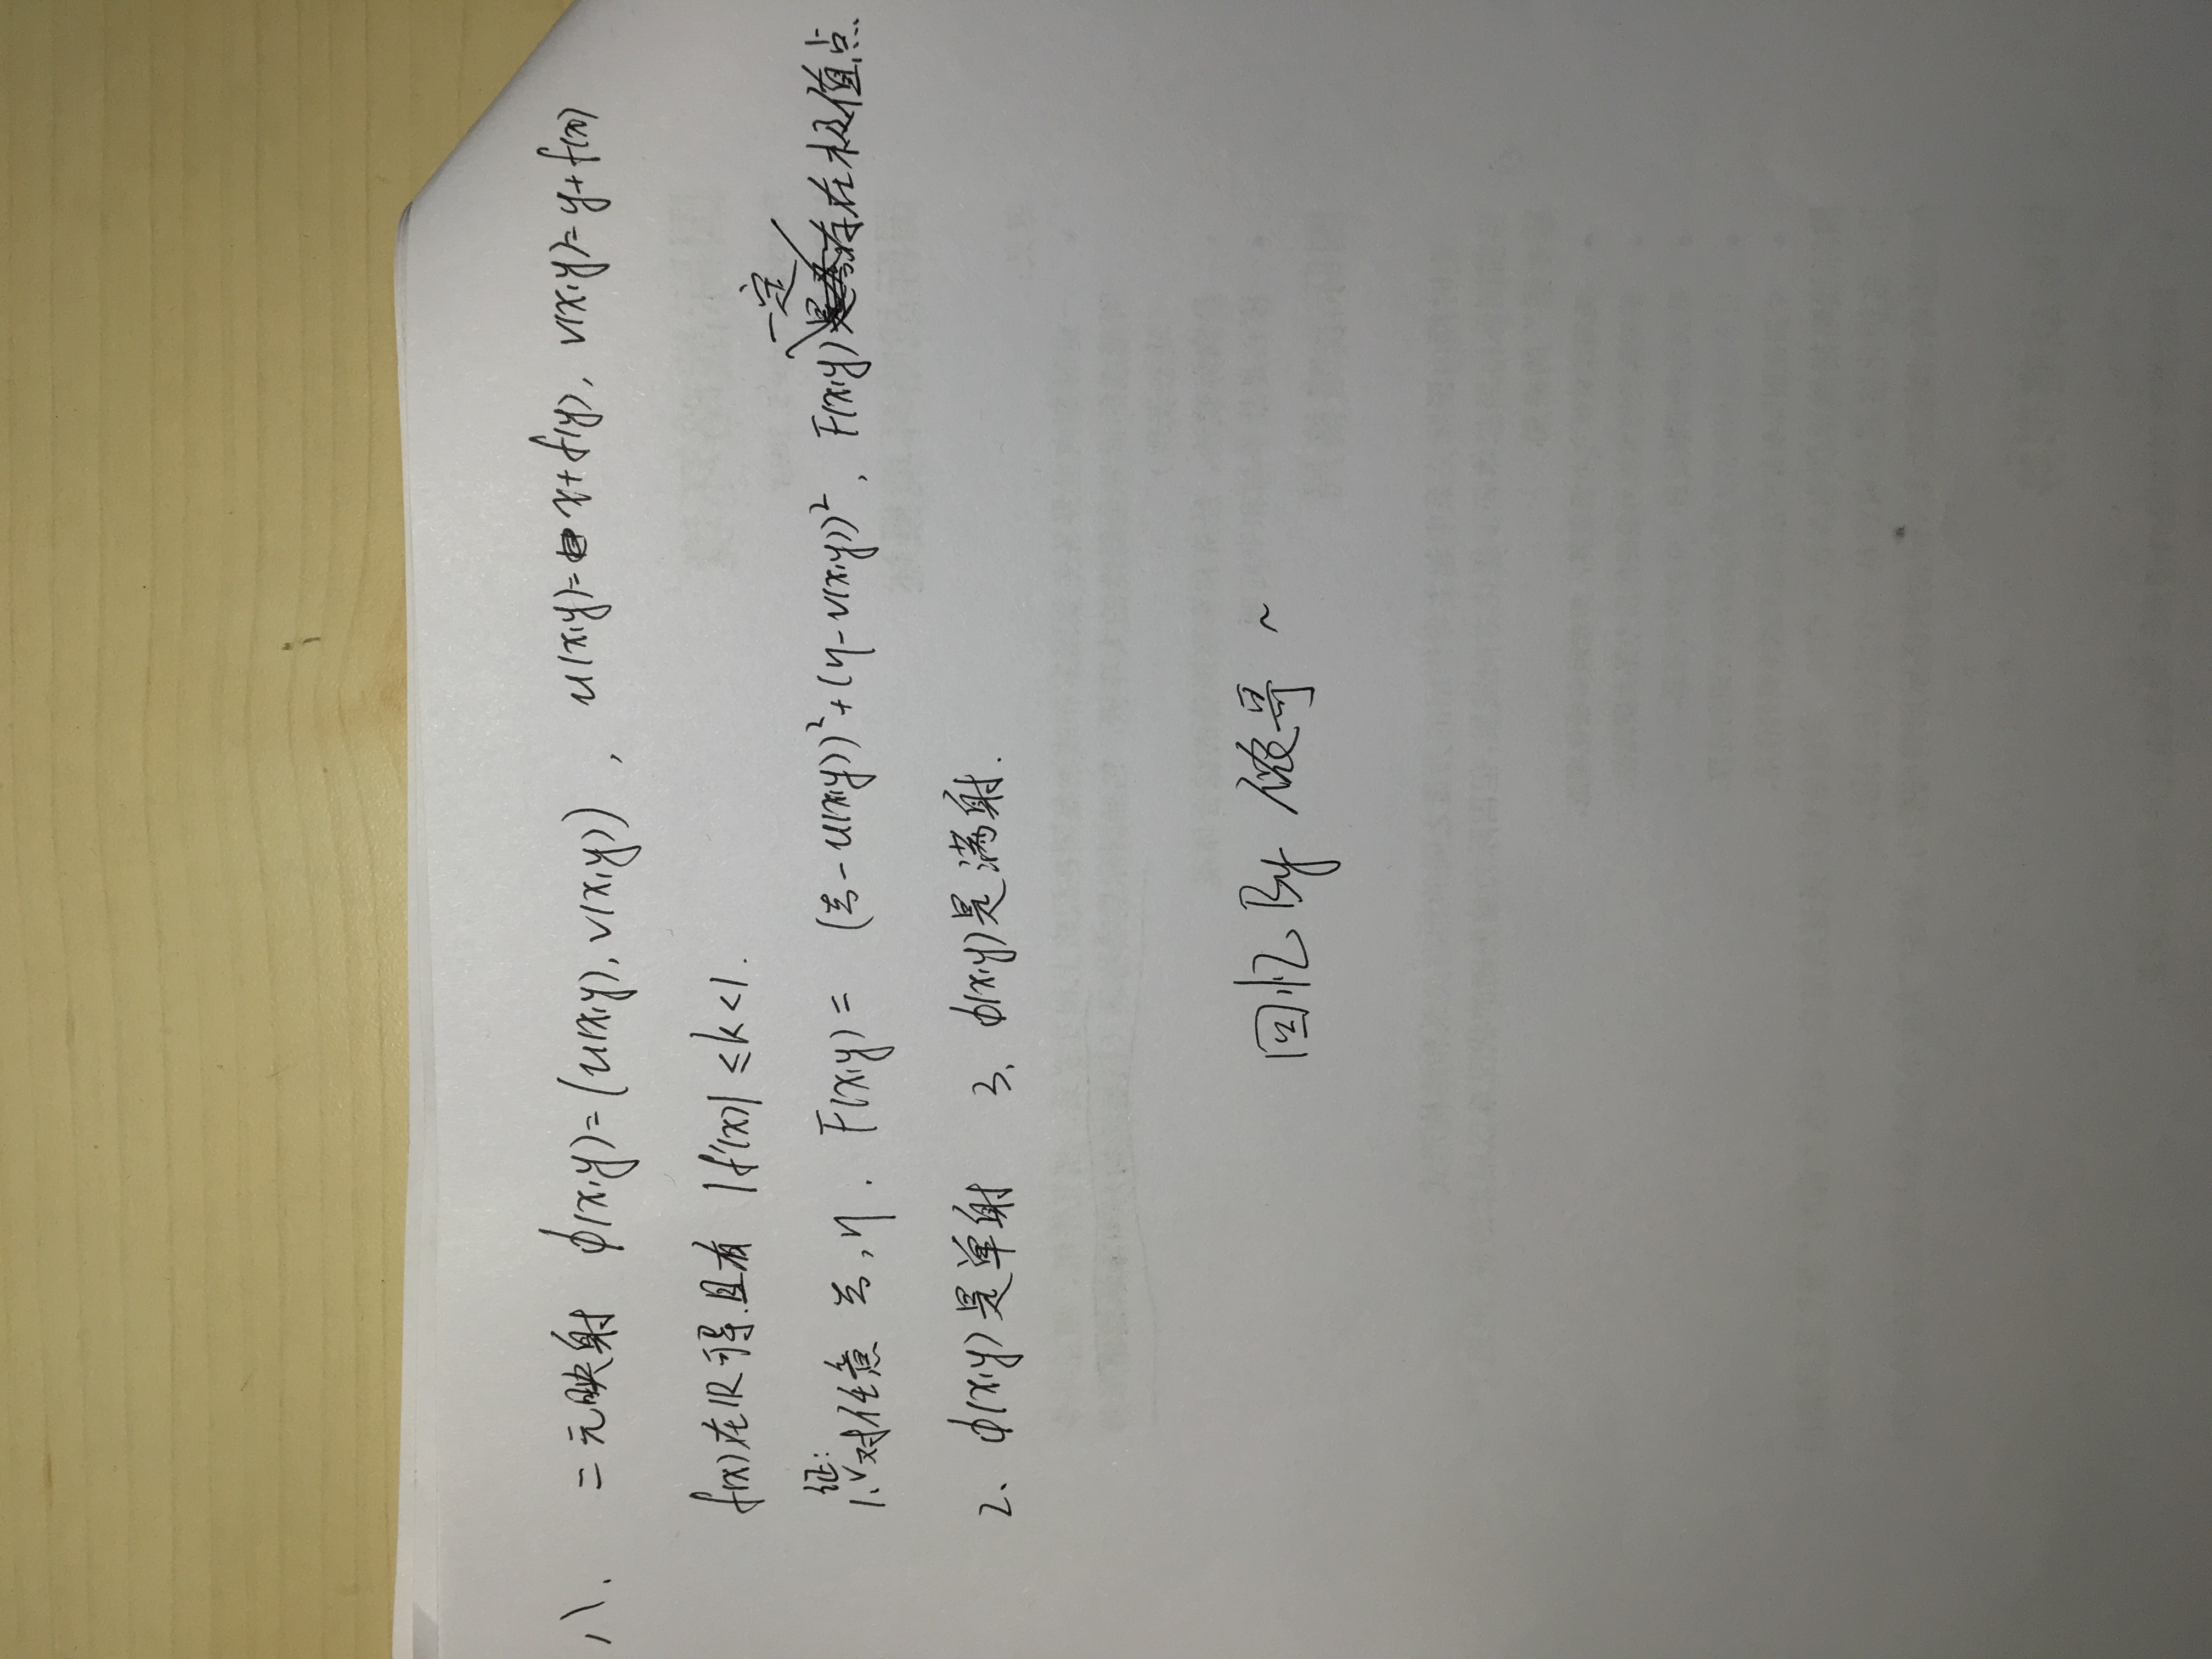 八、二元映射 φ(x,y)=(u(x,y), v(x,y)), u(x,y)=x+f(y), v(x,y)=y+f(x)
f(x)在R可导.且有 |f'(x)|≤k<1.
证:
1、对任意 ξ,η. F(x,y)=(ξ-u(x,y))²+(η-v(x,y))², F(x,y)一定存在极值点.
2、φ(x,y)是单射 3、φ(x,y)是满射.
回忆 By 俊哥~